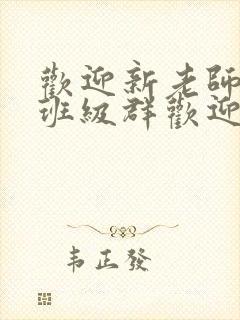 歡迎新老師
班級群歡迎
韦正發